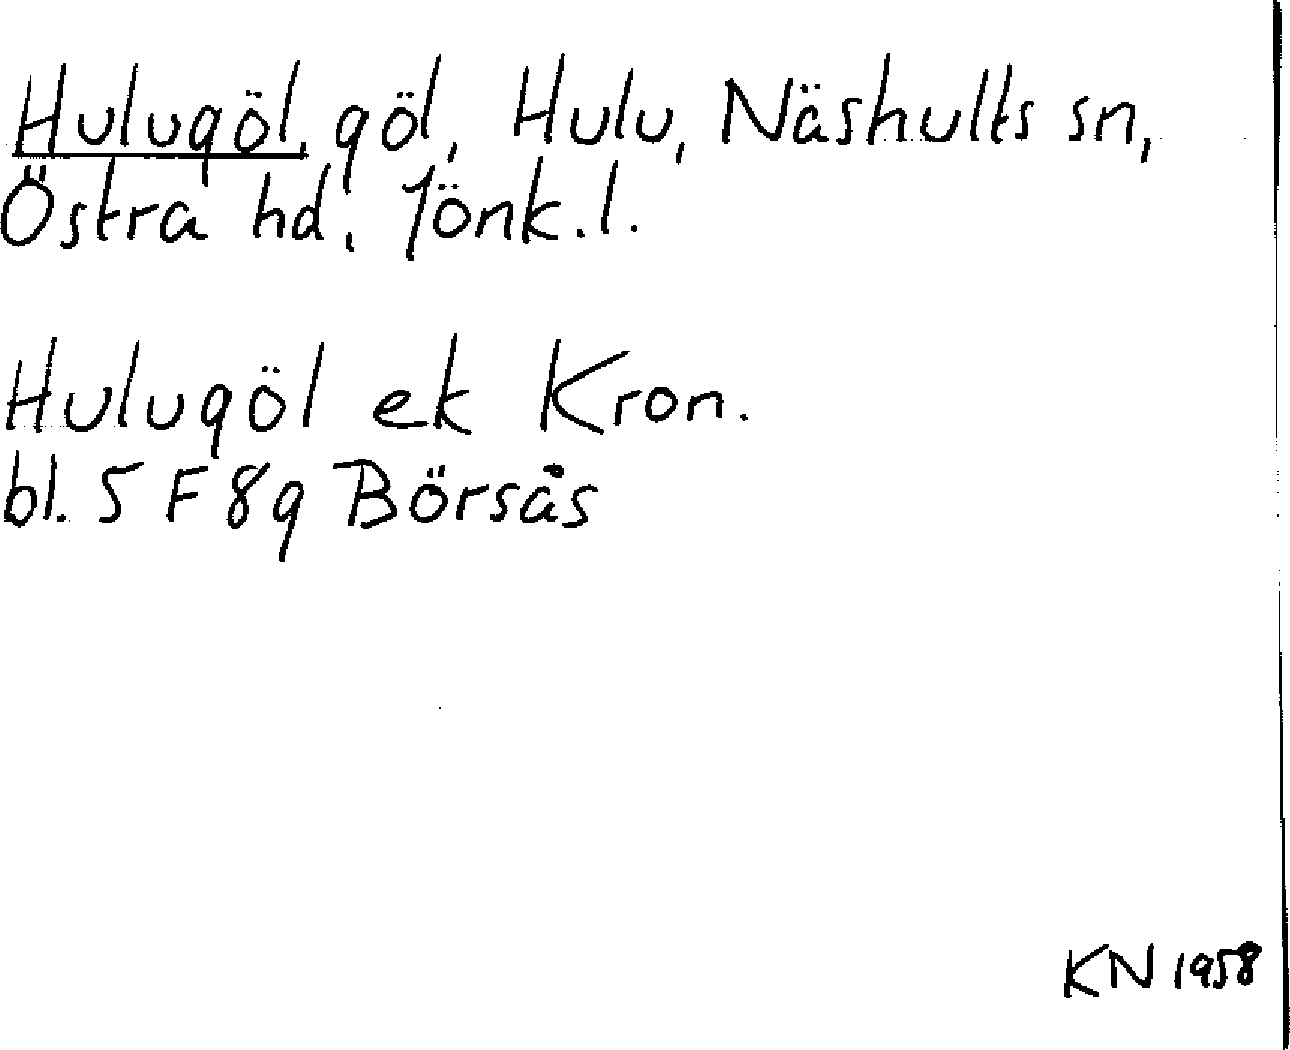 Hulugöl, göl, Hulu, Näshults sn,
Östra hd, Jönk.l.
Hulugöl ek Kron.
bl. 5 F 8g Börsås
KN 1958